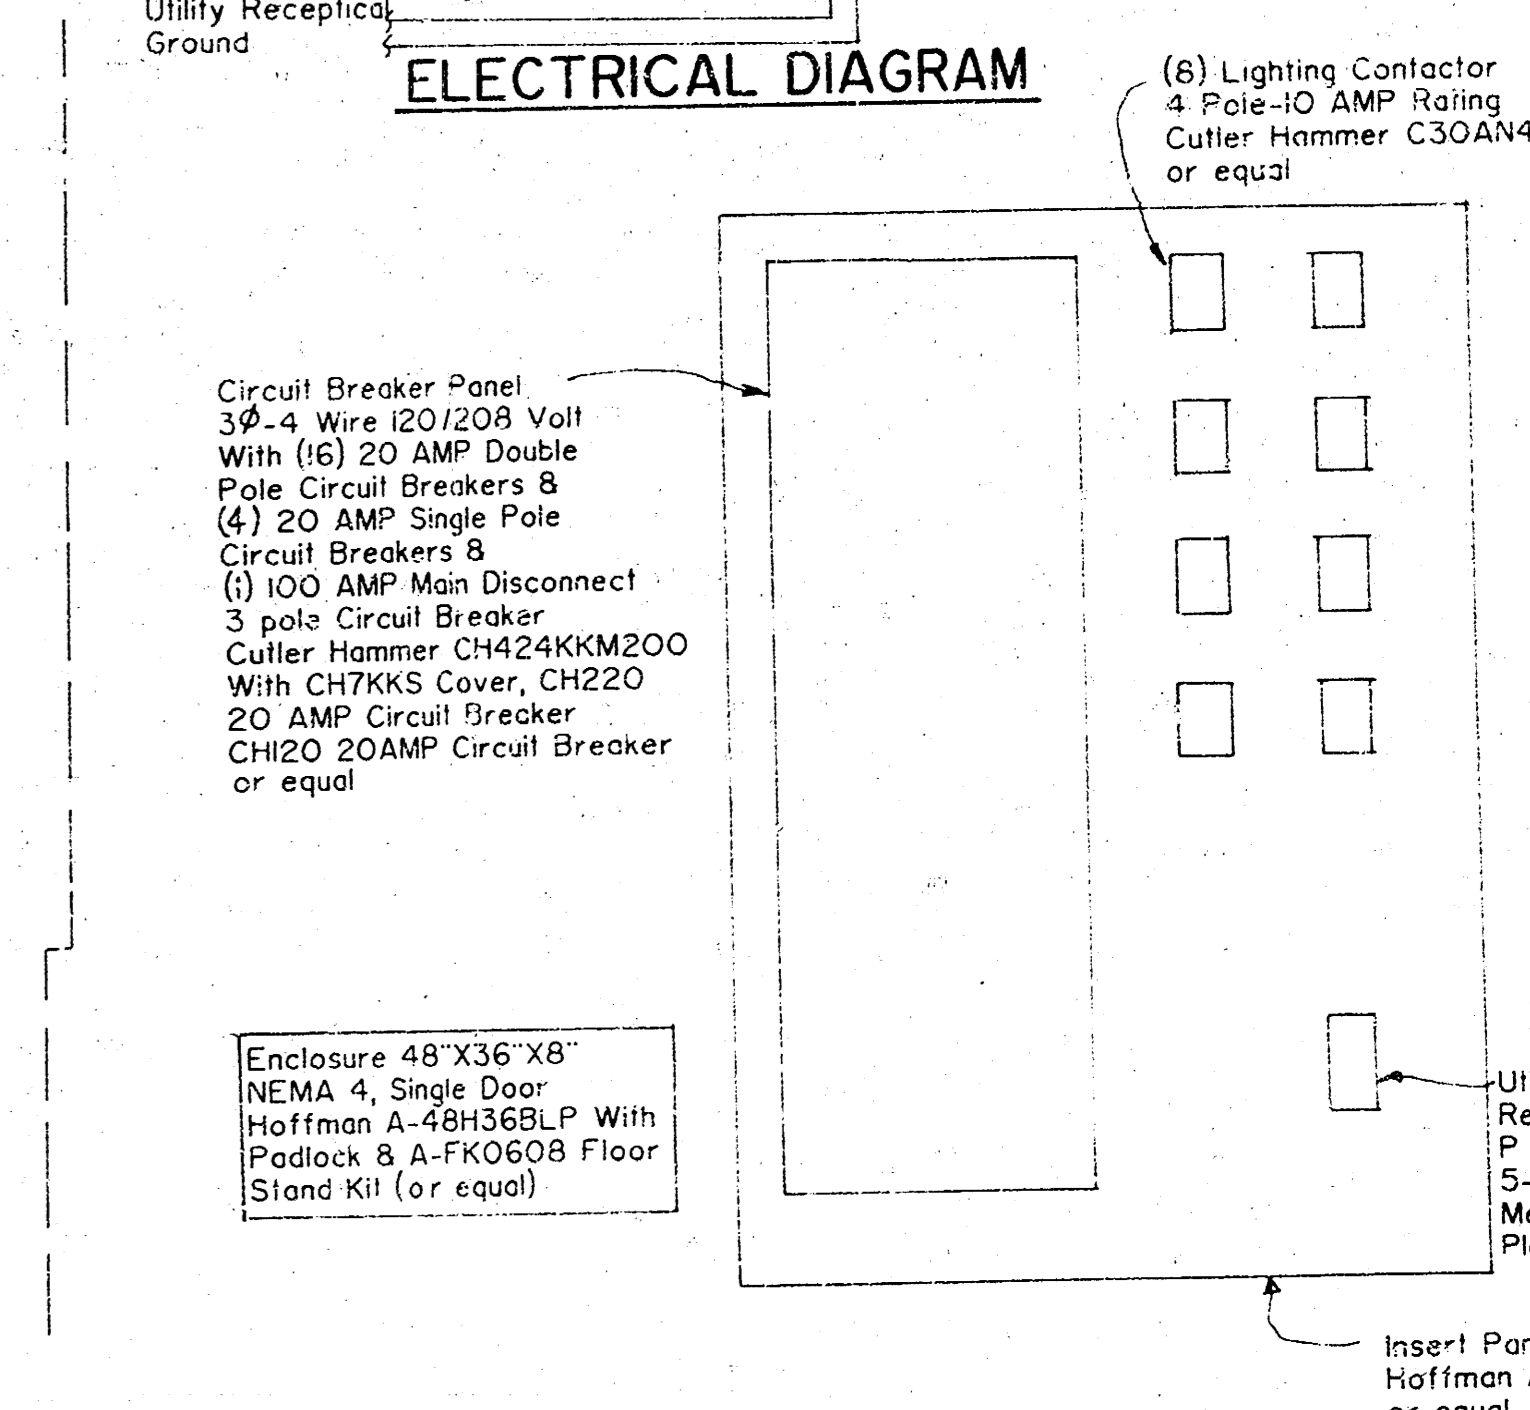 Utility Receptical
Ground
ELECTRICAL DIAGRAM
(8) Lighting Contactor
4 Pole-10 AMP Rating
Cutler Hammer C30AN4
or equal
Circuit Breaker Panel
3Ø-4 Wire 120/208 Volt
With (16) 20 AMP Double
Pole Circuit Breakers &
(4) 20 AMP Single Pole
Circuit Breakers &
(1) 100 AMP Main Disconnect
3 pole Circuit Breaker
Cutler Hammer CH424KKM200
With CH7KKS Cover, CH220
20 AMP Circuit Breaker
CH120 20AMP Circuit Breaker
or equal
Enclosure 48"X36"X8"
NEMA 4, Single Door
Hoffman A-48H36BLP With
Padlock & A-FK0608 Floor
Stand Kit (or equal)
Ut
Re
P
5-
Me
Pl
Insert Par
Hoffman
or equal